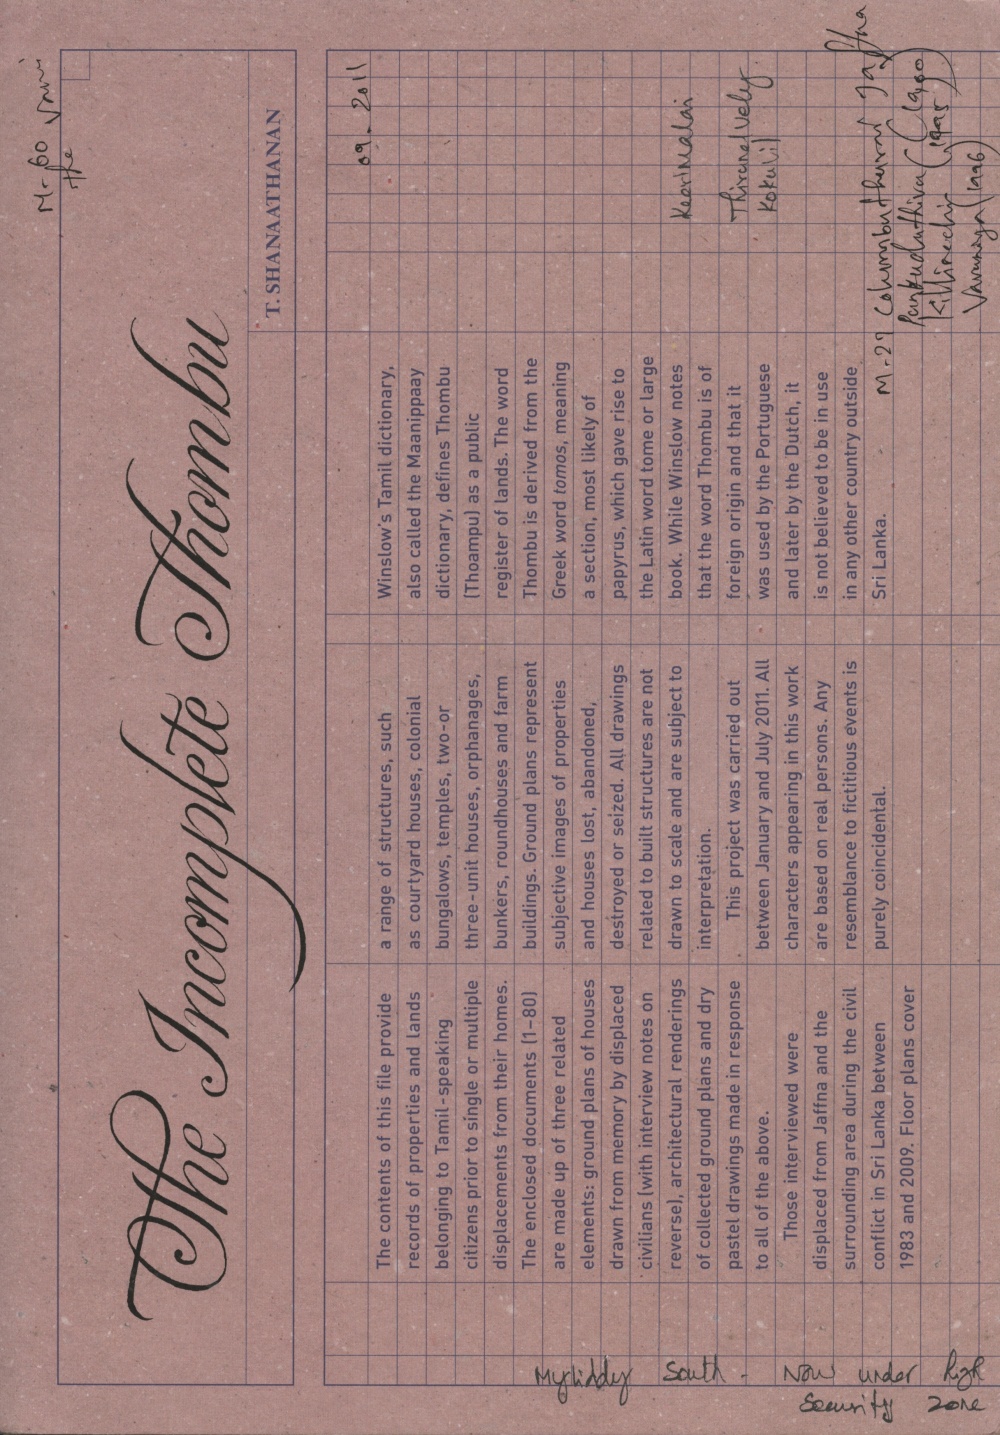 The Incomplete Thombu
T. SHANAATHANAN
The contents of this file provide
records of properties and lands
belonging to Tamil-speaking
citizens prior to single or multiple
displacements from their homes.
The enclosed documents (1–80)
are made up of three related
elements: ground plans of houses
drawn from memory by displaced
civilians (with interview notes on
reverse), architectural renderings
of collected ground plans and dry
pastel drawings made in response
to all of the above.
Those interviewed were
displaced from Jaffna and the
surrounding area during the civil
conflict in Sri Lanka between
1983 and 2009. Floor plans cover
a range of structures, such
as courtyard houses, colonial
bungalows, temples, two-or
three-unit houses, orphanages,
bunkers, roundhouses and farm
buildings. Ground plans represent
subjective images of properties
and houses lost, abandoned,
destroyed or seized. All drawings
related to built structures are not
drawn to scale and are subject to
interpretation.
This project was carried out
between January and July 2011. All
characters appearing in this work
are based on real persons. Any
resemblance to fictitious events is
purely coincidental.
Winslow's Tamil dictionary,
also called the Maanippaay
dictionary, defines Thombu
(Thoampu) as a public
register of lands. The word
Thombu is derived from the
Greek word tomos, meaning
a section, most likely of
papyrus, which gave rise to
the Latin word tome or large
book. While Winslow notes
that the word Thombu is of
foreign origin and that it
was used by the Portuguese
and later by the Dutch, it
is not believed to be in use
in any other country outside
Sri Lanka.
M-60
the
09. 2011
Keerimalai
Thirunelvely
Kokuvil
M-27 Columbuthurai Jaffna
(1990)
Killinochi 1995
(1996)
Myliddy South - Now under high
Security zone